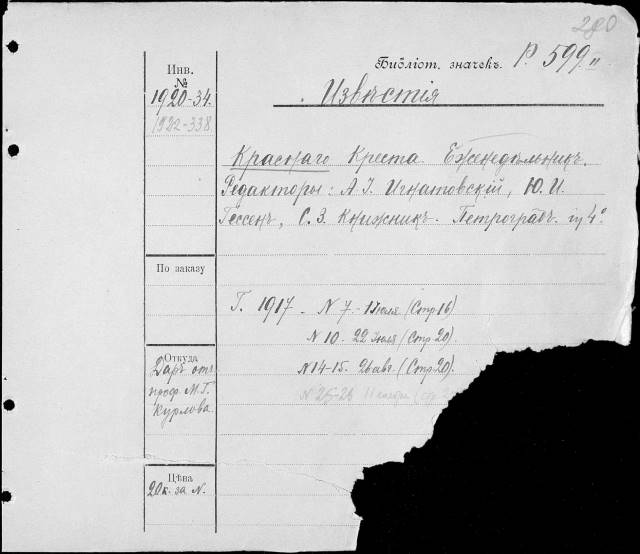 280
Библіот. значекъ. Р. 599 II
Извѣстія
Инв.
№
1920-34.
1922-338
Краснаго Креста Еженедѣльникъ.
Редакторы: А. І. Игнатовскій, Ю. И.
Гессенъ, С. З. Книжникъ. Петроградъ. in 4°
По заказу
Г. 1917 - N 7 - 1 Іюля (Стр 16)
N 10 - 22 Іюля (Стр. 20)
N 14-15. 26 авг. (Стр 20).
N 25-26 11 ноября (стр.
Откуда
Даръ отъ
проф. М. Г.
Курлова.
Цѣна
20 к. за N.